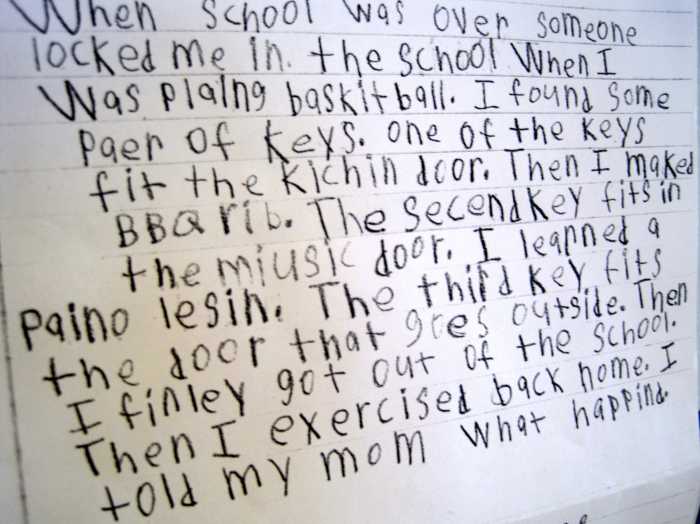 When School was over someone
locked me in. the school When I
Was plaing baskitball. I found some
paer of keys. One of the keys
fit the kichin door. Then I maked
BBQ rib. The Secend key fits in
the miusic door. I leanned a
paino lesin. The third key fits
the door that goes outside. Then
I finley got out of the school.
Then I exercised back home. I
told my mom what happind.